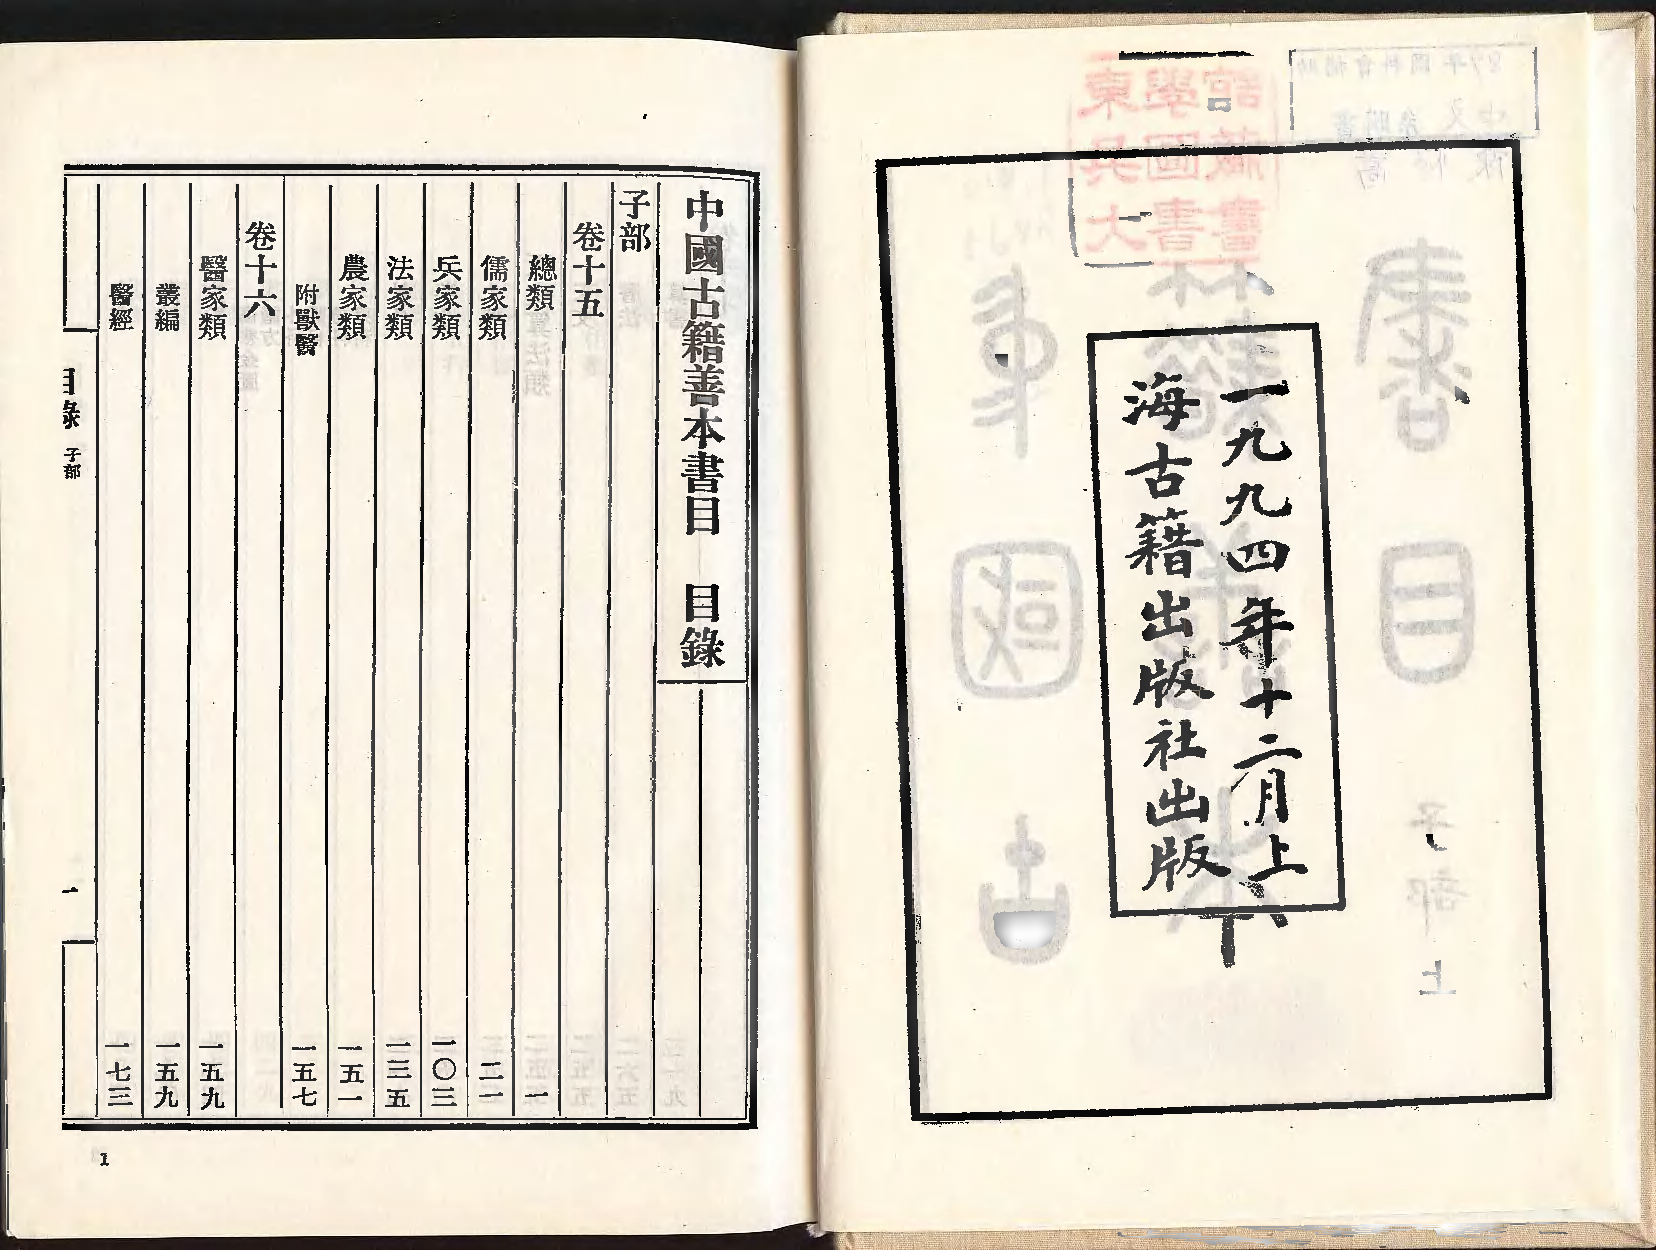 一九九四年十二月上
海古籍出版社出版
東吳大
學圖書
館藏書
中國古籍善本書目 目錄
子部
卷十五
總類 一
儒家類 二一
兵家類 一〇三
法家類 一三五
農家類 一五一
附獸醫 一五七
卷十六
醫家類 一五九
叢編 一五九
醫經 一七三
目錄 子部 一
1